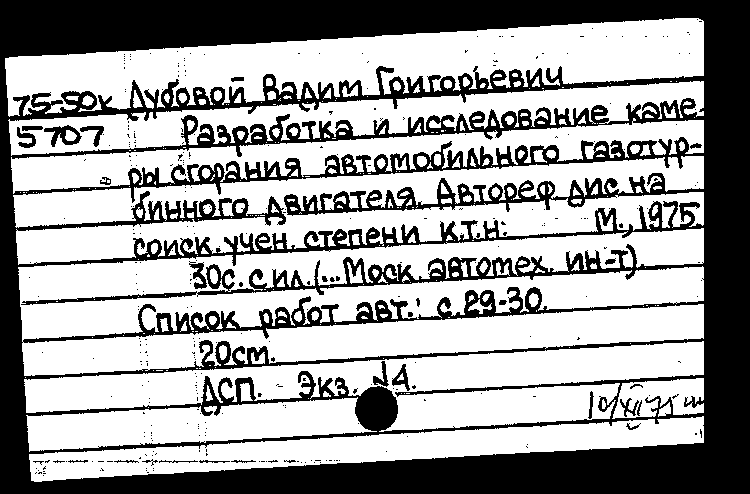 75-50к Дубовой, Вадим Григорьевич
5707 Разработка и исследование каме-
ры сгорания автомобильного газотур-
бинного двигателя. Автореф дис. на
соиск. учен. степени к.т.н: М., 1975.
30с. с ил. (... Моск. автомех. ин-т).
Список работ авт.: с. 29-30.
20см.
ДСП. Экз. №4.
10/XII 75